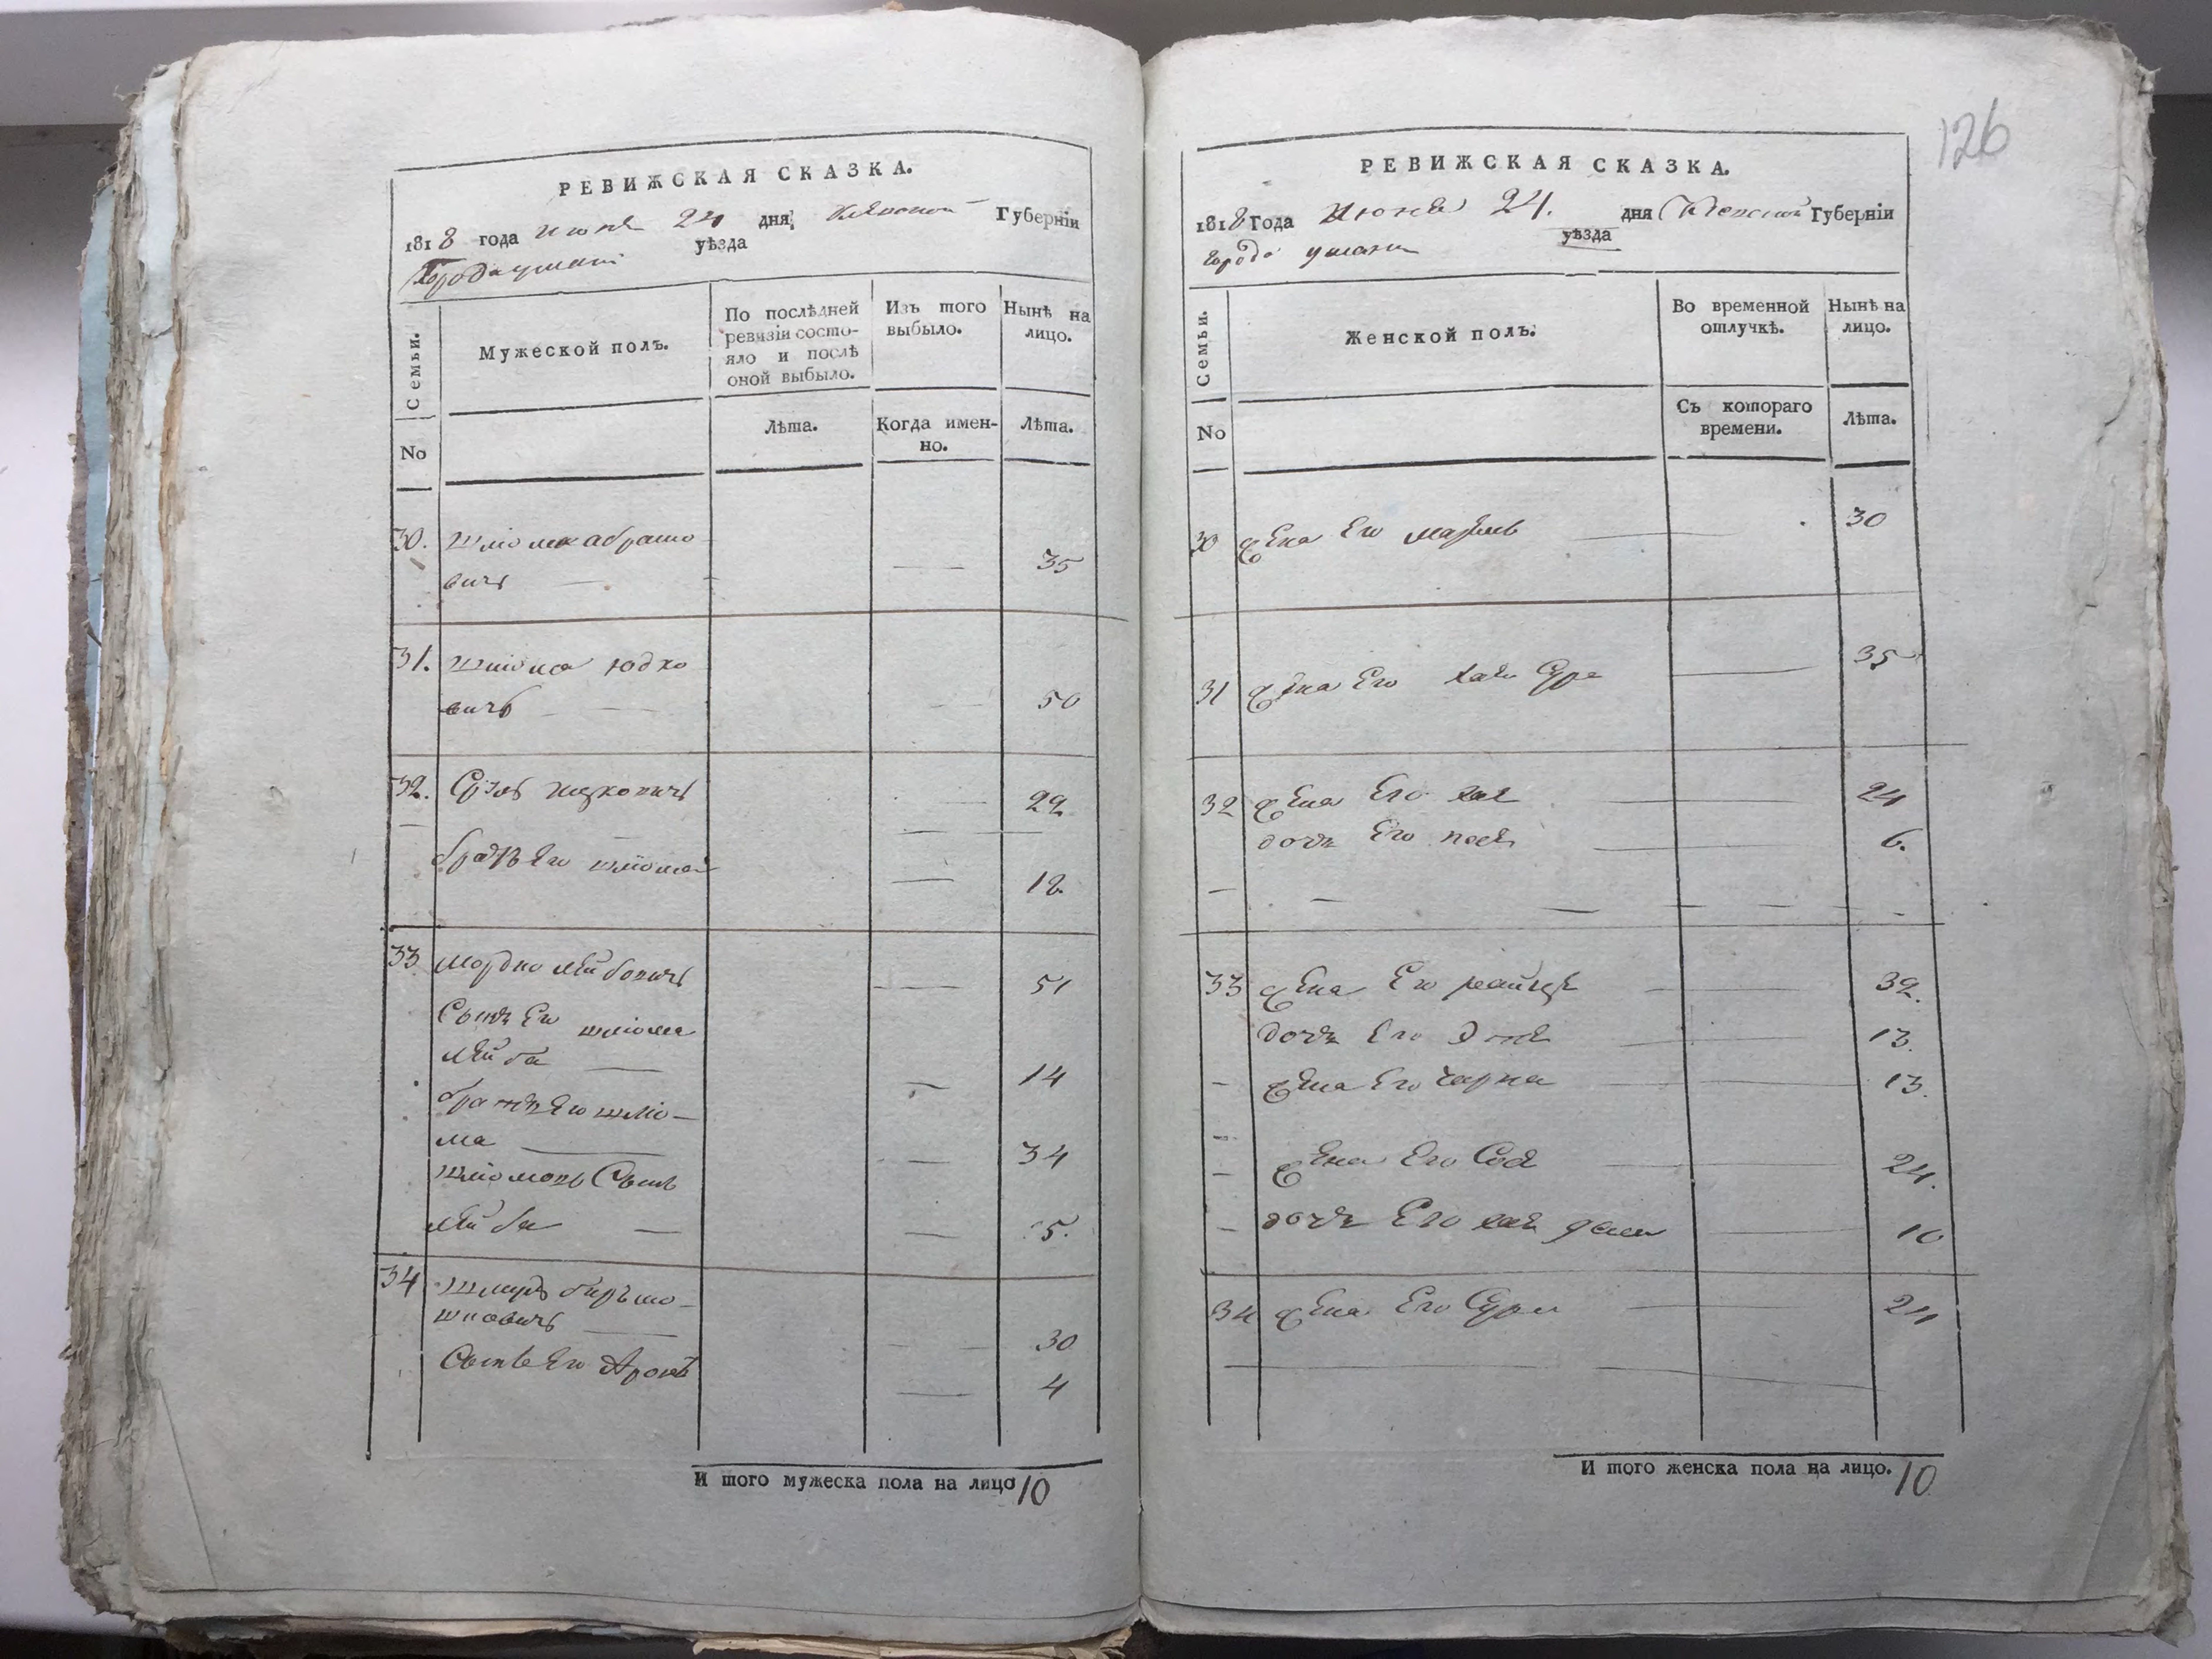 126
РЕВИЖСКАЯ СКАЗКА.
1818 года Июня 24 дня, Кіевской Губерніи
Города уманя уѣзда
Семьи.
Мужеской полъ.
По послѣдней ревизіи состо-
яло и послѣ
оной выбыло.
Изъ того
выбыло.
Нынѣ на
лицо.
No
Лѣта.
Когда имен-
но.
Лѣта.
30. Шліома абрамо
вичъ — — 35
31. Шліома Юдко
вичъ — — 50
32. Сруль ицковичъ — 22
братъ Его шліома — 18
33 Мордко лейбовичъ — 51
Сынъ Его шліома
лейба — — 14
братъ Его шліо-
ма — — 34
Шліомовъ Сынъ
лейба — — 5.
34
шковичъ — — 30
Сынъ Его Аронъ — 4
И того мужеска пола на лицо 10
РЕВИЖСКАЯ СКАЗКА.
1818 Года Июня 24. дня Кіевской Губерніи
города уманя уѣзда
Семьи.
Женской полъ.
Во временной
отлучкѣ.
Нынѣ на
лицо.
No
Съ котораго
времени.
Лѣта.
30 жена Его — 30
31 жена Его хая Сура — 35
32 жена Его хая — 24
дочь Его песя — 6.
33 жена Его — 32.
дочь Его — 13.
жена Его чарна — 13.
жена Его Сося — 24.
дочь Его хая — 10
34 жена Его Сура — 24
И того женска пола на лицо. 10